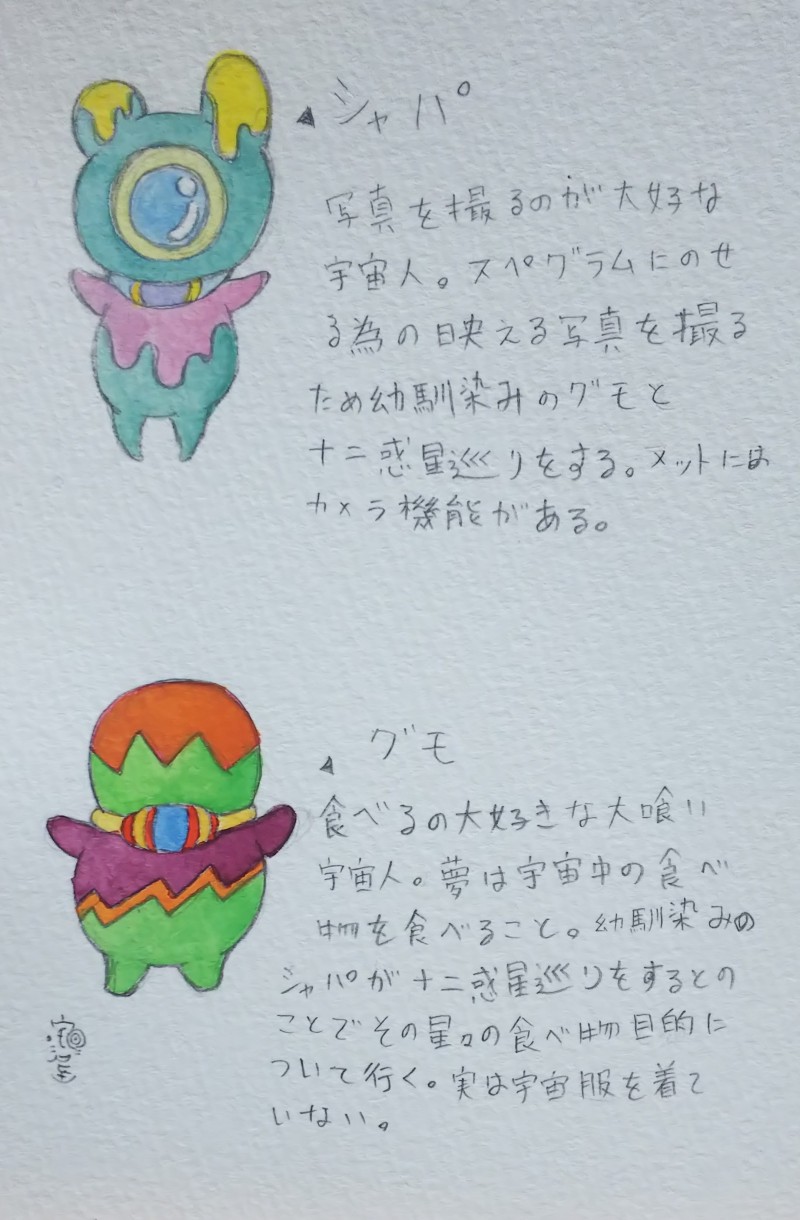 ▲シャパ
写真を撮るのが大好な
宇宙人。スペグラムにのせ
る為の映える写真を撮る
ため幼馴染みのグモと
十二惑星巡りをする。メットには
カメラ機能がある。
▲グモ
食べるの大好きな大喰い
宇宙人。夢は宇宙中の食べ
物を食べること。幼馴染みの
シャパが十二惑星巡りをするとの
ことでその星々の食べ物目的に
ついて行く。実は宇宙服を着て
いない。